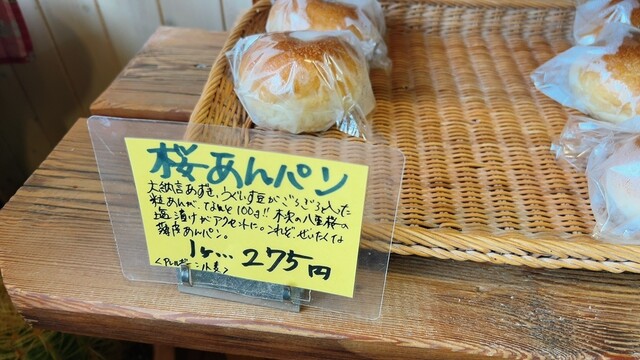 桜あんパン
大納言あずき、うぐいす豆がごろごろ入った
粒あんが、なんと100g!! 本次の八重桜の
塩漬けがアクセントに。これぞ、ぜいたくな
薄皮あんパン。
1ヶ… 275円
<アレルギー:小麦>